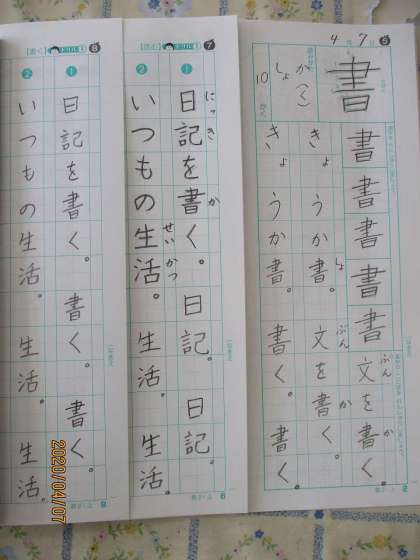 4月7日
5
書
書書書書書
文を書く。
ぶん
か
か(く)
しょ
10かく
きょうか書。文を書く。
しょ
ぶん
か
きょうか書。書く。書く。
【読む】
7
①
日記を書く。日記。日記。
にっき
か
②
いつもの生活。生活。生活。
せいかつ
【書く】
8
①
日記を書く。書く。書く。
②
いつもの生活。生活。生活。
2020/04/07